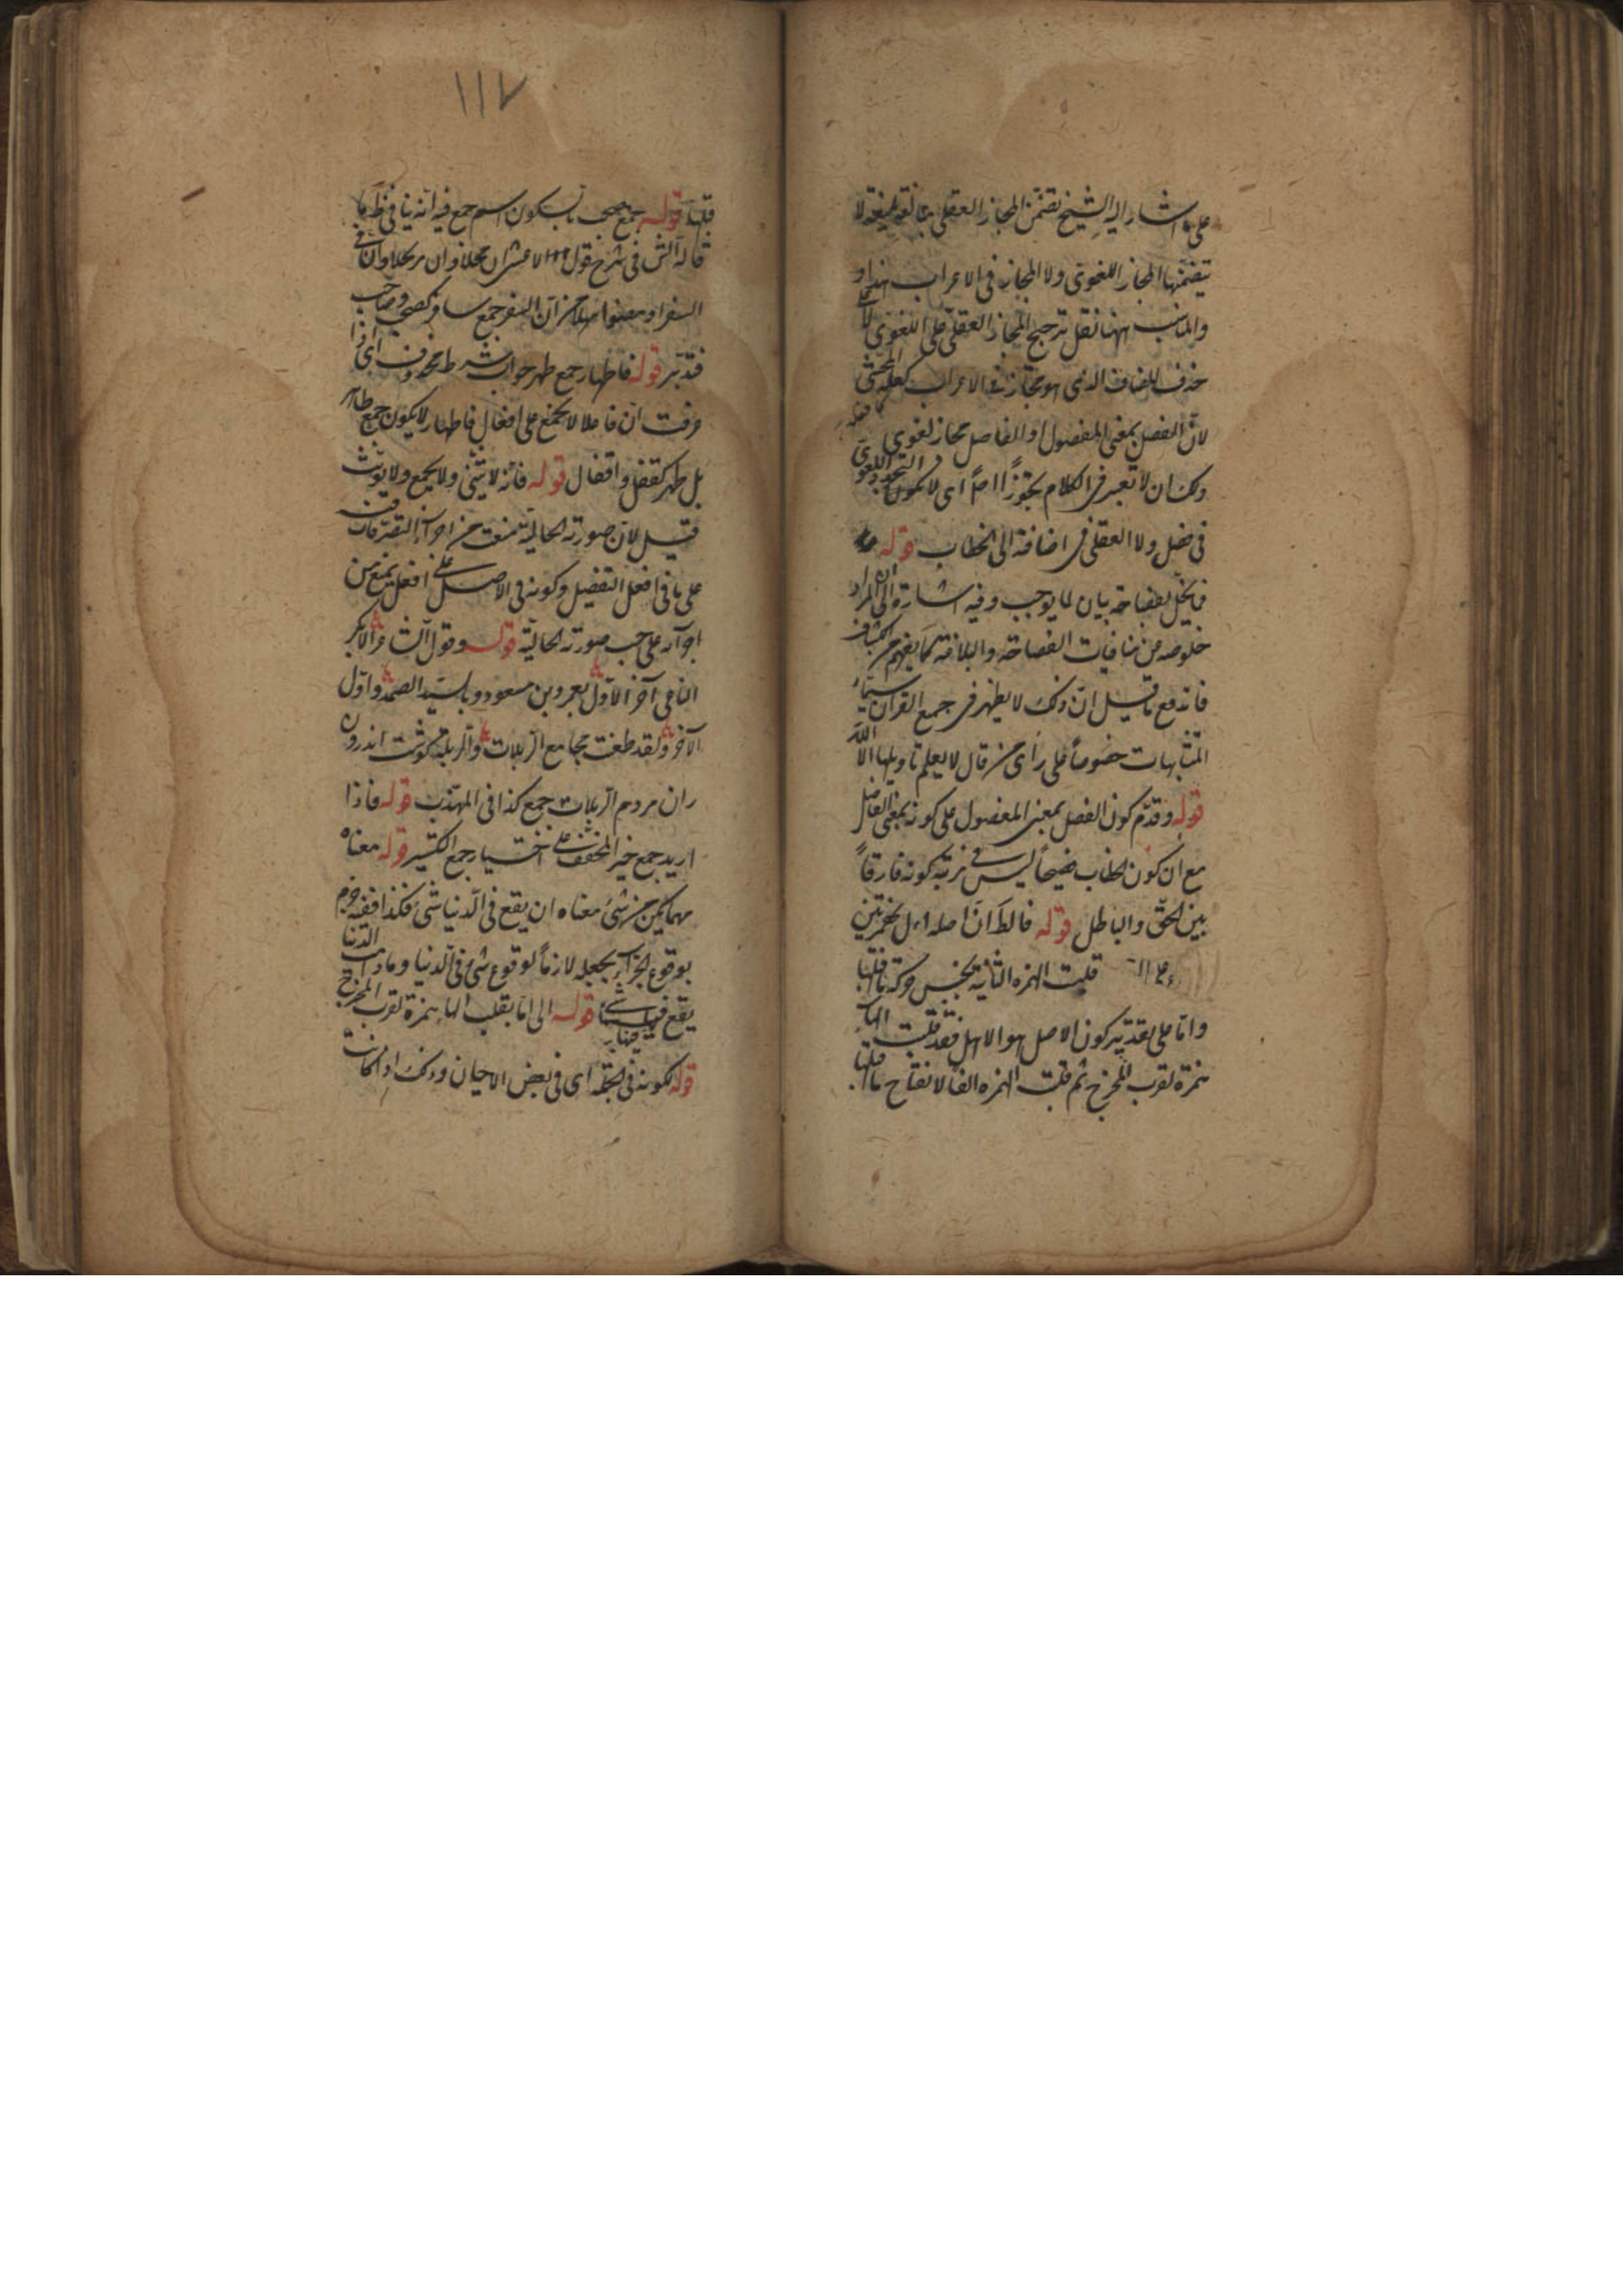 على ما اشار اليه الشيخ تضمن المجاز العقلى مبالغة لطيفة لا
يتضمنها المجاز اللغوى ولا المجاز فى الاعراب هذا و
والمناسب ههنا نقل ترجيح المجاز العقلى على اللغوى لا على
حذف المضاف الذى هو مجاز فى الاعراب كما فعله المحشى
لان الفصل بمعنى المفصول او الفاصل مجاز لغوى
ولك ان لا تعبر فى الكلام تجوزاً اى لا يكون التجوز اللغوى
فى فصل ولا العقلى فى اضافته الى الخطاب قوله مما
يخل بفصاحته بيان لما يوجب وفيه اشارة الى ان المراد
خلوصه من منافيات الفصاحة والبلاغة كما يفهم من الكشاف
فاندفع ما قيل ان ذلك لا يظهر فى جميع القرآن سيما
المتشابهات خصوصاً على رأى من قال لا يعلم تأويلها الا الله
قوله وقدم كون الفصل بمعنى المفصول على كونه بمعنى الفاصل
مع ان كون الخطاب فصيحاً ليس فى مرتبة كونه فارقاً
بين الحق والباطل قوله فالظ ان اصله اءل بهمزتين
قلبت الهمزه الثانية بجنس حركة ما قبلها
واما على تقدير كون الاصل هو الاهل فقد قلبت الهاء
همزة لقرب المخرج ثم قلبت الهمزه الفا لانفتاح ما قبلها
١١٧
قبلها قوله جمع صحب بالسكون اسم جمع فيه انه ينافى ظ ما
قاله الش فى شرح قول الاعشى ان محلا وان مرتحلا وان فى
السفر اذ مضوا مهلا من ان السفر جمع سافر كصحب وصاحب
فتدبر قوله فاطهار جمع طهر جواب شرط محذوف اى اذا
عرفت ان فاعلا لا يجمع على افعال فاطهار لا يكون جمع طاهر
بل طهر كقفل واقفال قوله فانه لا يثنى ولا يجمع ولا يؤنث
قيل لان صورته الحالية تمنعت من اجراء التصرفات فيه
على ما فى افعل التفضيل وكونه فى الاصل على افعل يمنع من
اجرائه على حسب صورته الحالية قوله وقول الشاعر الاكبر
الناعى آخر الاول بعمرو بن مسعود وبالسيد الصمد واول
الآخر ولقد طعنت مجامع الربلات والربلة گوشت اندرون
ران مردم الربلات جمع كذا فى المهذب قوله فاذا
اريد جمع خير المخفف على اختيار جمع التكسير قوله معناه
مهما يكن من شىء معناه ان يقع فى الدنيا شىء فكذا ففيه جزم
بوقوع الجزاء بجعله لازماً لوقوع شىء فى الدنيا وما دامت الدنيا
يقع فيها شىء قوله الى اما بقلب الهاء همزة لقرب المخرج
قوله لكونه فى الجملة اى فى بعض الاحيان وذلك اذا كانت